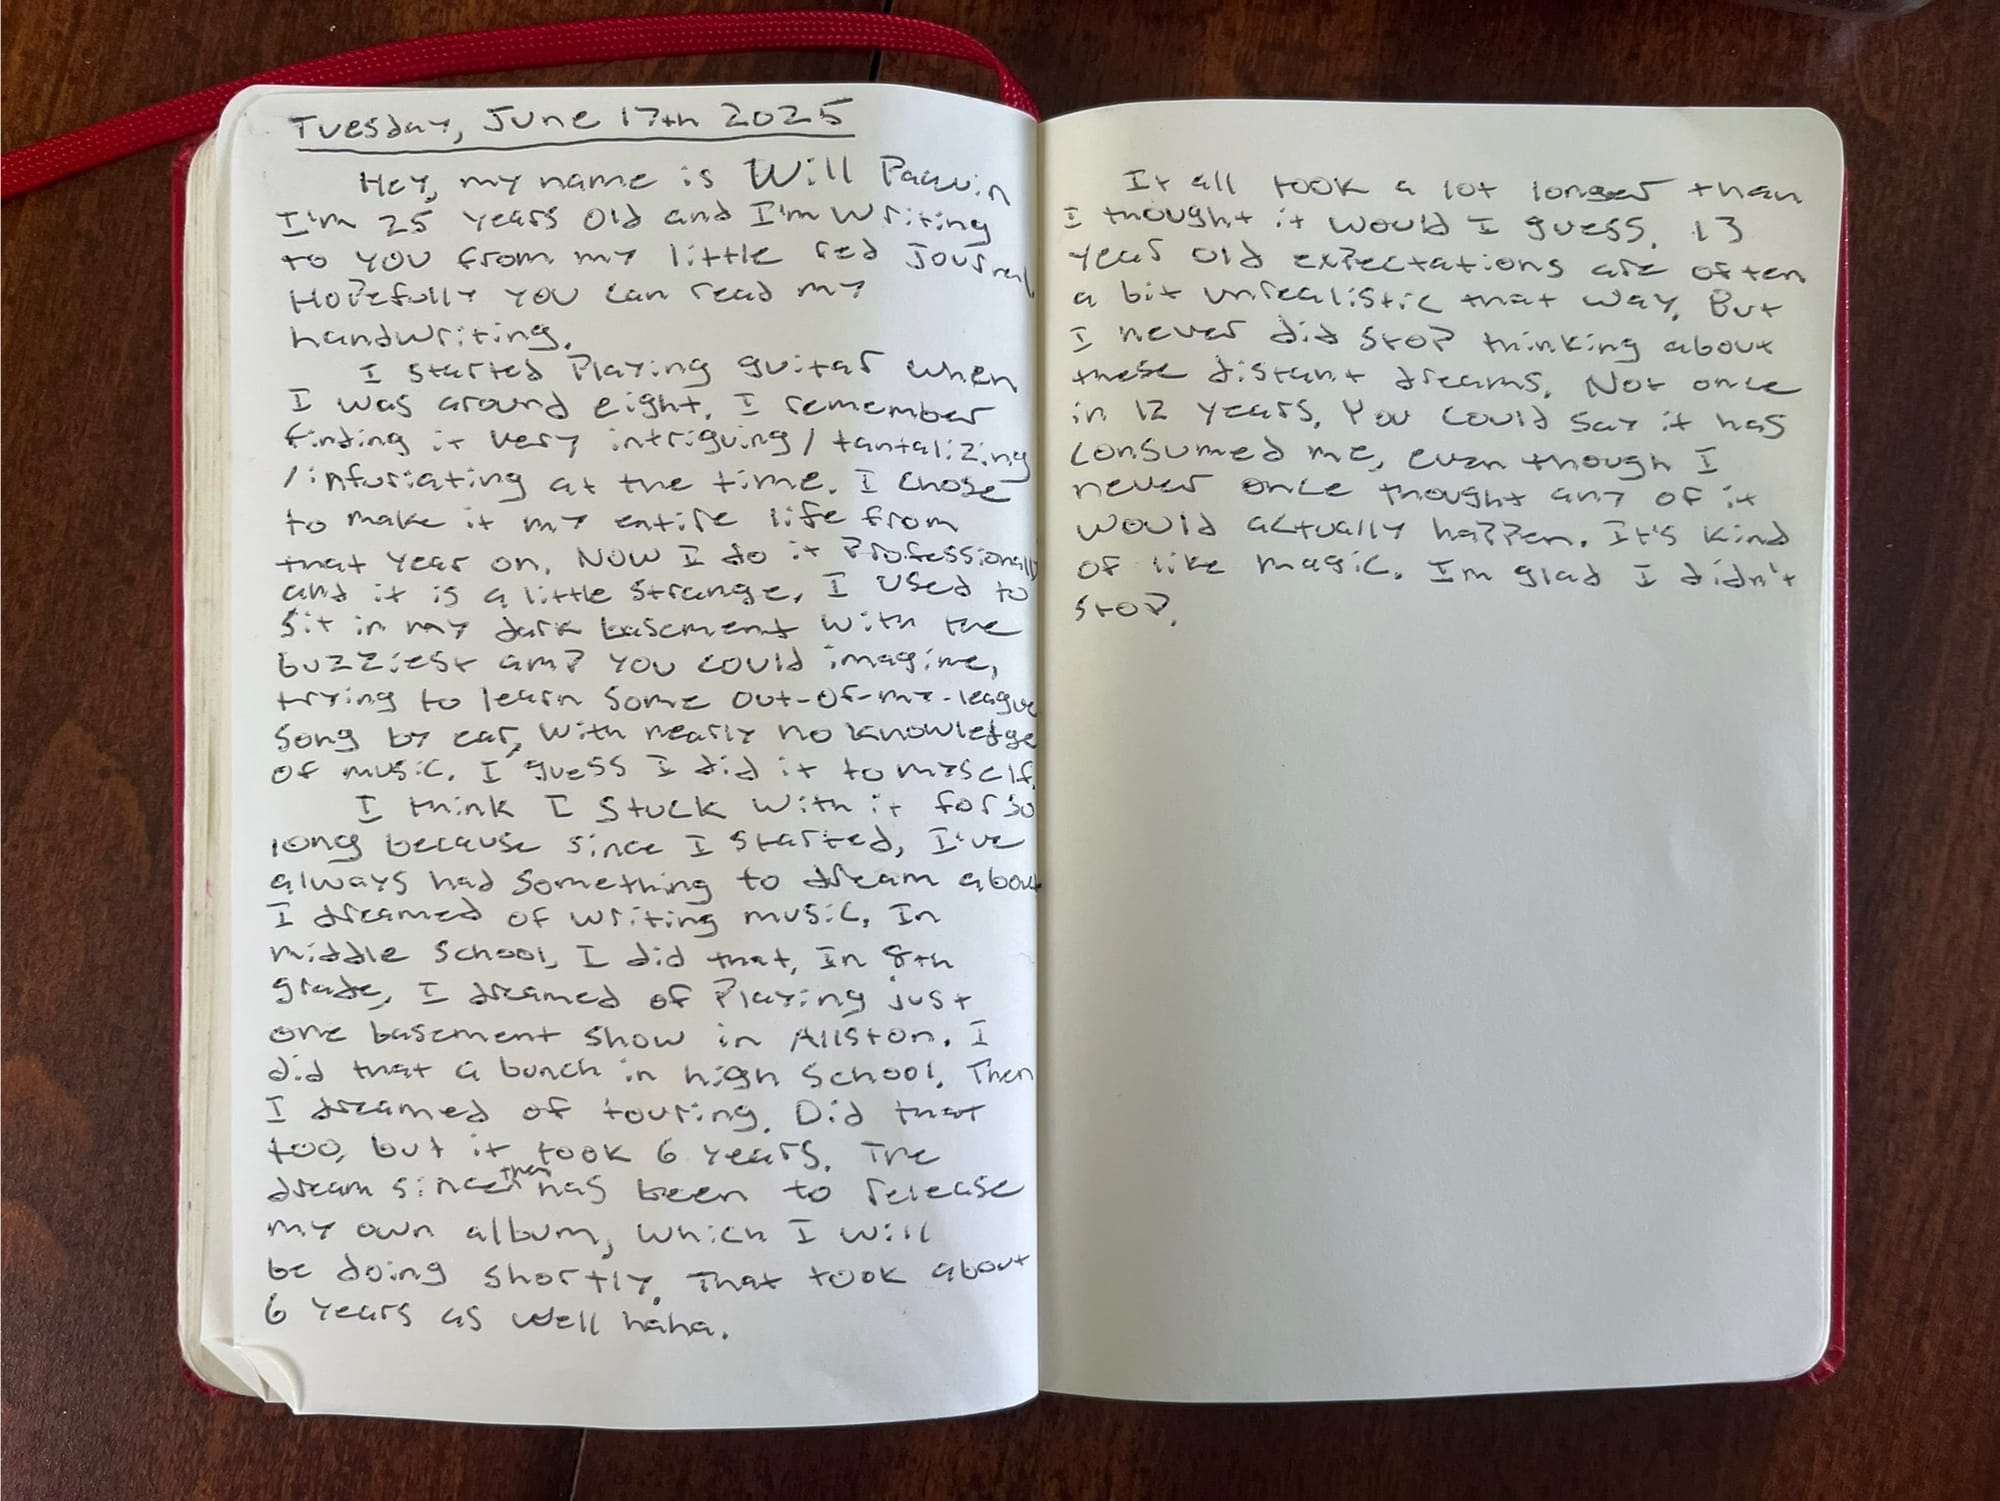 Tuesday, June 17th 2025
Hey, my name is Will Paquin
I'm 25 years old and I'm writing
to you from my little red journal.
Hopefully you can read my
handwriting.
I started playing guitar when
I was around eight. I remember
finding it very intriguing/tantalizing
/infuriating at the time. I chose
to make it my entire life from
that year on. Now I do it professionally
and it is a little strange. I used to
sit in my dark basement with the
buzziest amp you could imagine,
trying to learn some out-of-my-league
song by ear, with nearly no knowledge
of music. I guess I did it to myself.
I think I stuck with it for so
long because since I started, I've
always had something to dream about
I dreamed of writing music. In
middle school, I did that. In 8th
grade, I dreamed of playing just
one basement show in Allston. I
did that a bunch in high school. Then
I dreamed of touring. Did that
too, but it took 6 years. The
dream since then has been to release
my own album, which I will
be doing shortly. That took about
6 years as well haha.
It all took a lot longer than
I thought it would I guess. 13
year old expectations are often
a bit unrealistic that way. But
I never did stop thinking about
these distant dreams. Not once
in 12 years. You could say it has
consumed me, even though I
never once thought any of it
would actually happen. It's kind
of like magic. Im glad I didn't
stop.